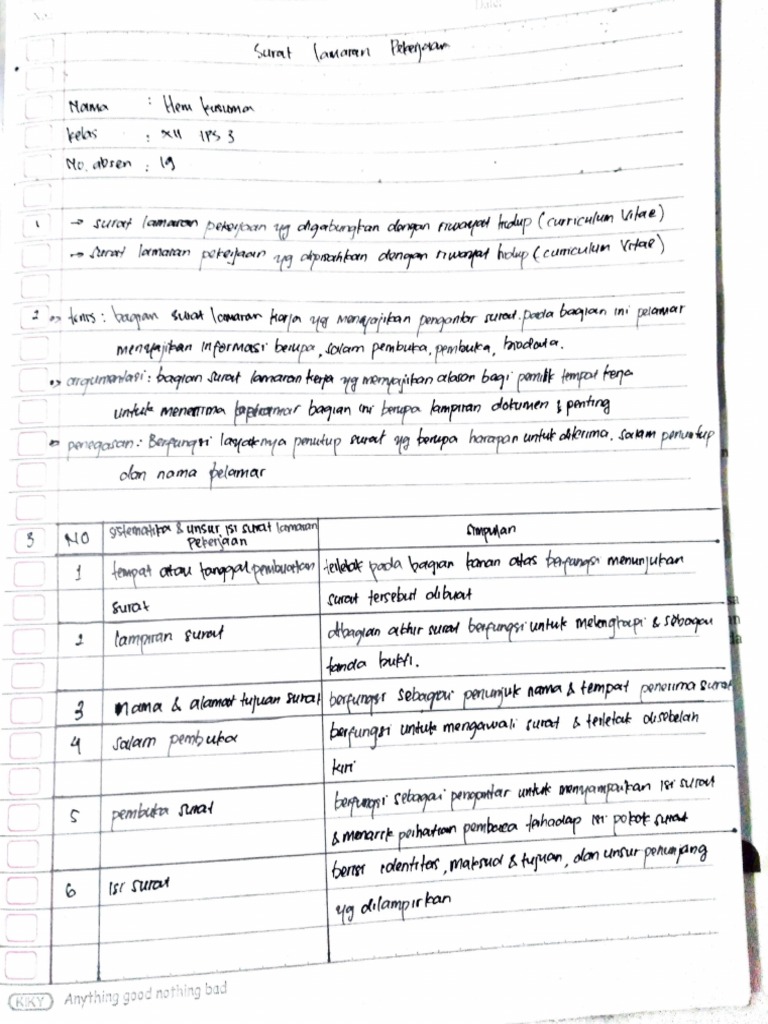 No.
Date:
Surat lamaran Pekerjaan
Nama : Heni kusuma
kelas : XII IPS 3
No. absen : 19
1 → surat lamaran pekerjaan yg digabungkan dengan riwayat hidup (curriculum Vitae)
→ surat lamaran pekerjaan yg dipisahkan dengan riwayat hidup (curriculum Vitae)
2 => tesis : bagian surat lamaran kerja yg menyajikan pengantar surat. pada bagian ini pelamar
menyajikan informasi berupa, salam pembuka, pembuka, biodata.
=> argumentasi : bagian surat lamaran kerja yg menyajikan alasan bagi pemilik tempat kerja
untuk menerima bagian ini berupa lampiran dokumen & penting
penegasan : Berfungsi layaknya penutup surat yg berupa harapan untuk diterima. salam penuntup
dan nama pelamar
3 NO sistematika & unsur isi surat lamaran Pekerjaan simpulan
1 tempat atau tanggal pembuatan terletak pada bagian kanan atas berfungsi menunjukan
surat surat tersebut dibuat
2 lampiran surat dibagian akhir surat berfungsi untuk melengkapi & sebagai
tanda bukti.
3 nama & alamat tujuan surat berfungsi sebagai penunjuk nama & tempat penerima surat
4 salam pembuka berfungsi untuk mengawali surat & terletak disebelah
kiri
5 pembuka surat berfungsi sebagai pengantar untuk menyampaikan isi surat
& menarik perhatian pembaca tahadap isi pokok surat
6 isi surat berisi identitas, maksud & tujuan, dan unsur penunjang
yg dilampirkan
KIKY Anything good nothing bad